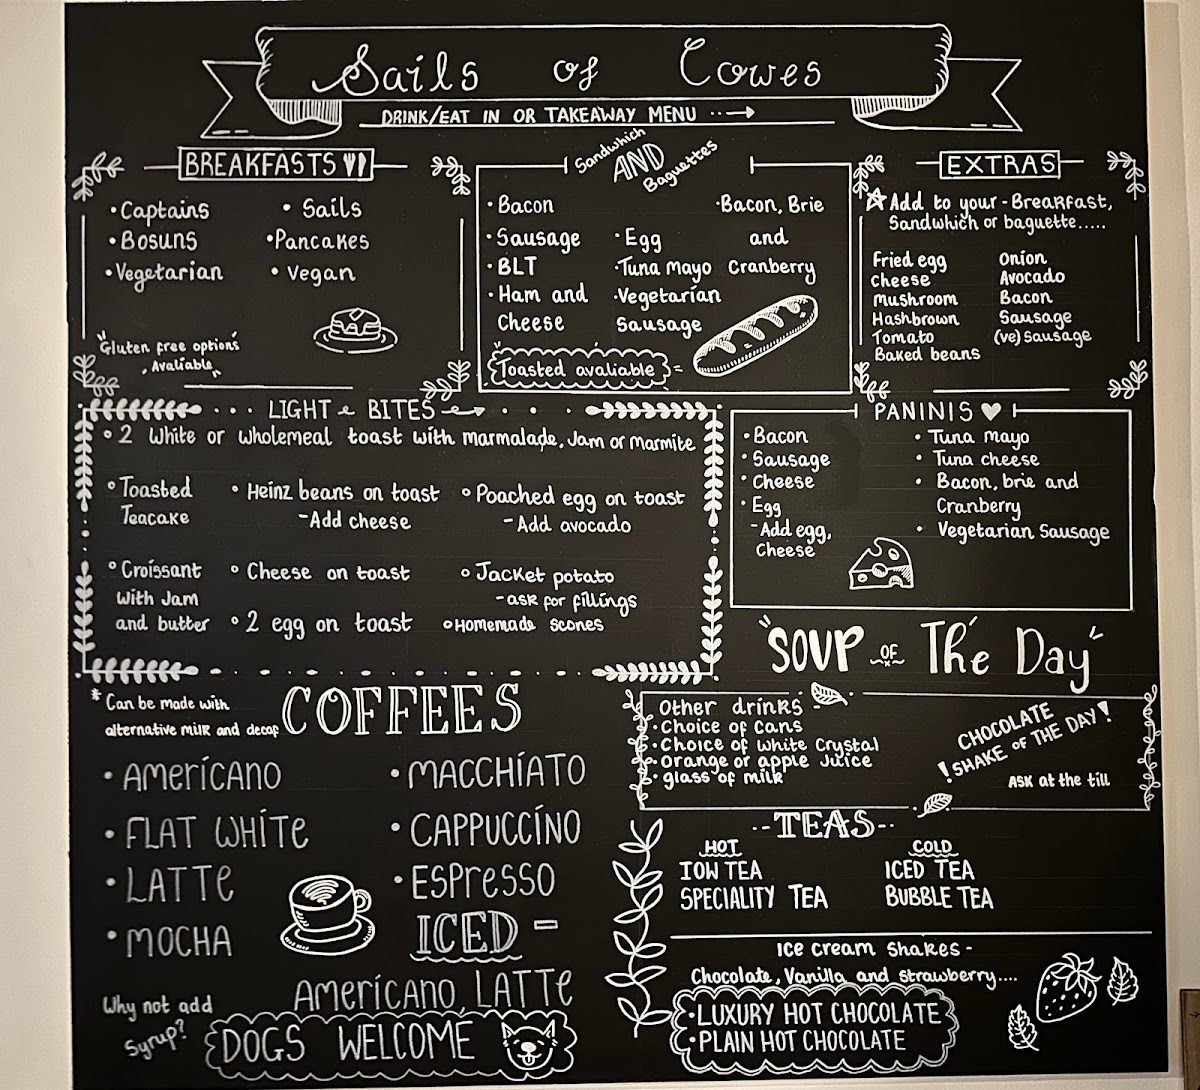 Sails of Cowes
DRINK/EAT IN OR TAKEAWAY MENU
BREAKFASTS
• Captains
• Bosuns
• Vegetarian
• Sails
• Pancakes
• Vegan
"Gluten free options"
"Avaliable"
Sandwhich
AND
Baguettes
• Bacon
• Sausage
• BLT
• Ham and
Cheese
• Egg
• Tuna Mayo
• Vegetarian
Sausage
• Bacon, Brie
and
Cranberry
"Toasted avaliable" =
EXTRAS
Add to your - Breakfast,
Sandwhich or baguette.....
Fried egg
cheese
mushroom
Hashbrown
Tomato
Baked beans
Onion
Avocado
Bacon
Sausage
(ve) sausage
LIGHT BITES
• 2 white or wholemeal toast with marmalade, Jam or Marmite
• Toasted
Teacake
• Heinz beans on toast
- Add cheese
• Poached egg on toast
- Add avocado
• Croissant
with Jam
and butter
• Cheese on toast
• 2 egg on toast
• Jacket potato
- ask for fillings
• Homemade scones
PANINIS
• Bacon
• Sausage
• Cheese
• Egg
- Add egg,
Cheese
• Tuna mayo
• Tuna cheese
• Bacon, brie and
Cranberry
• Vegetarian Sausage
"SOUP OF The Day"
* Can be made with
alternative milk and decaf
COFFEES
• Americano
• FLAT WHITE
• LATTE
• MOCHA
• MACCHIATO
• CAPPUCCINO
• ESPresso
ICED -
Americano, LATTe
Why not add
Syrup?
DOGS WELCOME
Other drinks -
• Choice of cans
• Choice of white Crystal
• Orange or apple Juice
• glass of milk
CHOCOLATE
! SHAKE OF THE DAY !
ASK at the till
--TEAS--
HOT
IOW TEA
SPECIALITY TEA
COLD
ICED TEA
BUBBLE TEA
Ice cream shakes -
Chocolate, Vanilla and strawberry....
• LUXURY HOT CHOCOLATE
• PLAIN HOT CHOCOLATE